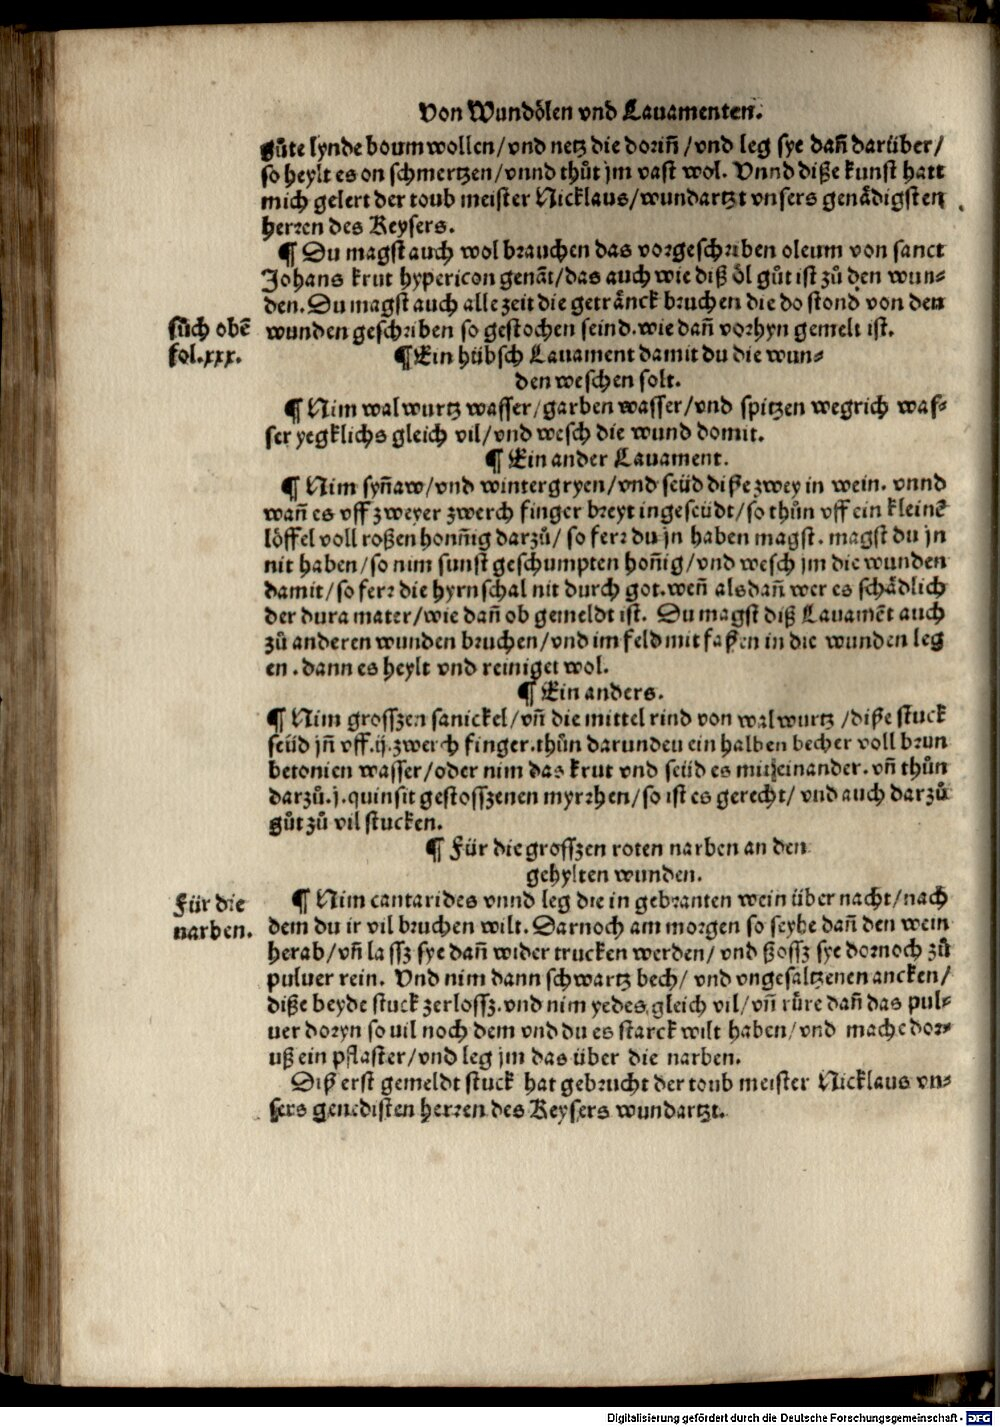 Von Wundölen vnd Lauamenten.
gůte lynde boum wollen/vnd netz die dorin̄/vnd leg sye dan̄ darüber/
so heylt es on schmertzen/vnnd thůt jm vast wol. Vnnd diße kunst hatt
mich gelert der toub meister Nicklaus/wundartzt vnsers genädigsten
herren des Keysers.
¶ Du magst auch wol brauchen das vorgeschriben oleum von sanct
Johans krut hypericon genāt/das auch wie diß öl gůt ist zů den wun⸗
den. Du magst auch alle zeit die getränck bruchen die do stond von den
sůch obē
wunden geschriben so gestochen seind. wie dan̄ vorhyn gemelt ist.
fol.xxx.
¶ Ein hübsch Lauament damit du die wun⸗
den weschen solt.
¶ Nim walwurtz wasser/garben wasser/vnd spitzen wegrich was⸗
ser yegklichs gleich vil/vnd wesch die wund domit.
¶ Ein ander Lauament.
¶ Nim syn̄aw/vnd wintergryen/vnd seüd diße zwey in wein. vnnd
wan̄ es vff zweyer zwerch finger breyt ingeseüdt/so thůn vff ein kleinē
löffel voll roßen honn̄ig darzů/ so ferr du jn haben magst. magst du jn
nit haben/so nim sunst geschumpten hon̄ig/vnd wesch jm die wunden
damit/so ferr die hyrnschal nit durch got. wen̄ alsdan̄ wer es schädlich
der dura mater/wie dan̄ ob gemeldt ist. Du magst diß Lauamēt auch
zů anderen wunden bruchen/vnd im feld mit faßen in die wunden leg
en. dann es heylt vnd reiniget wol.
¶ Ein anders.
¶ Nim grosszen sanickel/vn̄ die mittel rind von walwurtz/diße stuck
seüd jn̄ vff.ij.zwerch finger.thůn darunden ein halben becher voll brun
betonien wasser/oder nim das krut vnd seüd es miteinander. vn̄ thůn
darzů.j.quinsit gestosszenen myrrhen/so ist es gerecht/ vnd auch darzů
gůt zů vil stucken.
¶ Für die grosszen roten narben an den
gehylten wunden.
Für die
narben.
¶ Nim cantarides vnnd leg die in gebranten wein über nacht/nach
dem du ir vil bruchen wilt. Darnoch am morgen so seyhe dan̄ den wein
herab/vn̄ lassz sye dan̄ wider trucken werden/ vnd ßossz sye dornoch zů
puluer rein. Vnd nim dann schwartz bech/ vnd vngesaltzenen ancken/
diße beyde stuck zerlossz. vnd nim yedes gleich vil/vn̄ rüre dan̄ das pul⸗
uer doryn so uil noch dem vnd du es starck wilt haben/vnd mache dor⸗
uß ein pflaster/vnd leg jm das über die narben.
Diß erst gemeldt stuck hat gebrucht der toub meister Nicklaus vn⸗
sers genedisten herren des Keysers wundartzt.
Digitalisierung gefördert durch die Deutsche Forschungsgemeinschaft - DFG